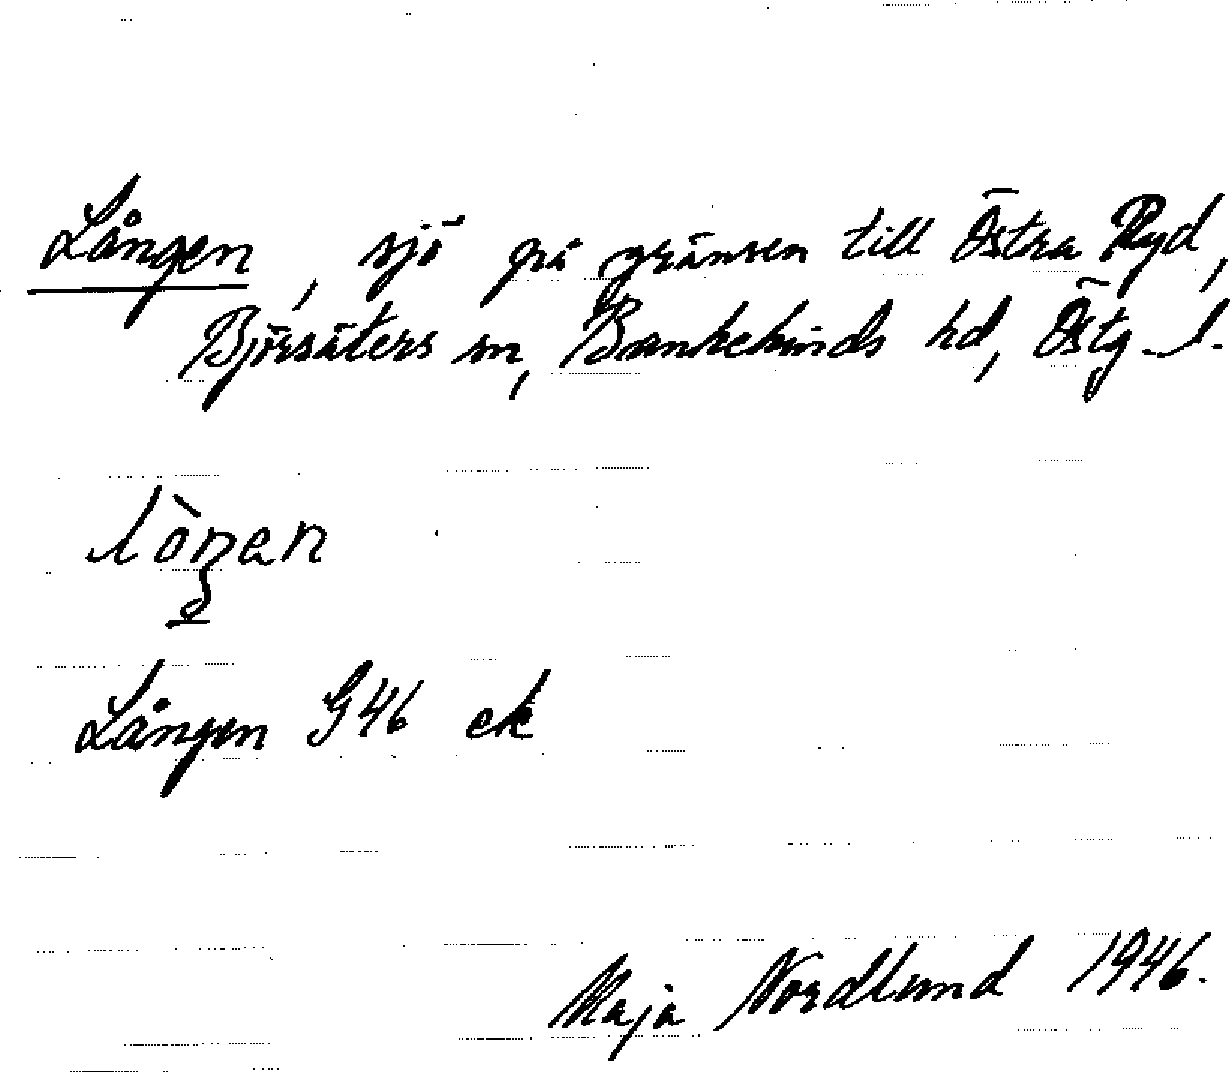 Lången, sjö på gränsen till Östra Ryd,
Björsäters sn, Bankekinds hd, Östg. l.
Lången G46 ek
Maja Nordlund 1946.